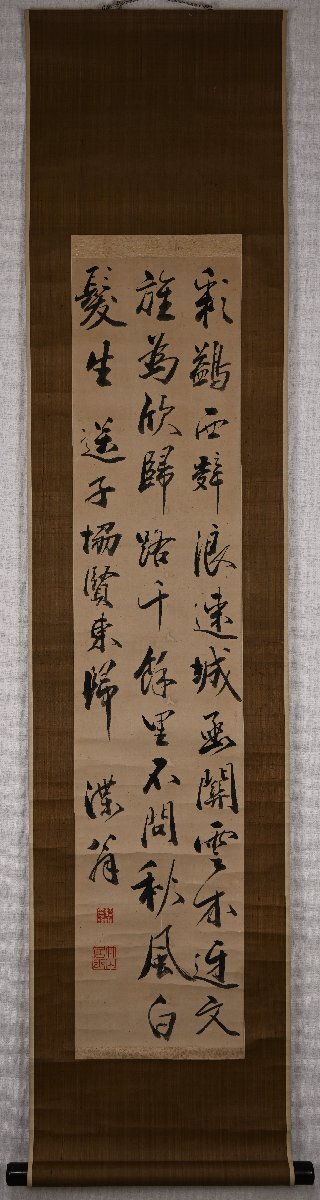 彩鷁西辭浪速城函關雲木迓文
旌為欣歸路千餘里不問秋風白
髮生 送子協賢東歸 濮翁